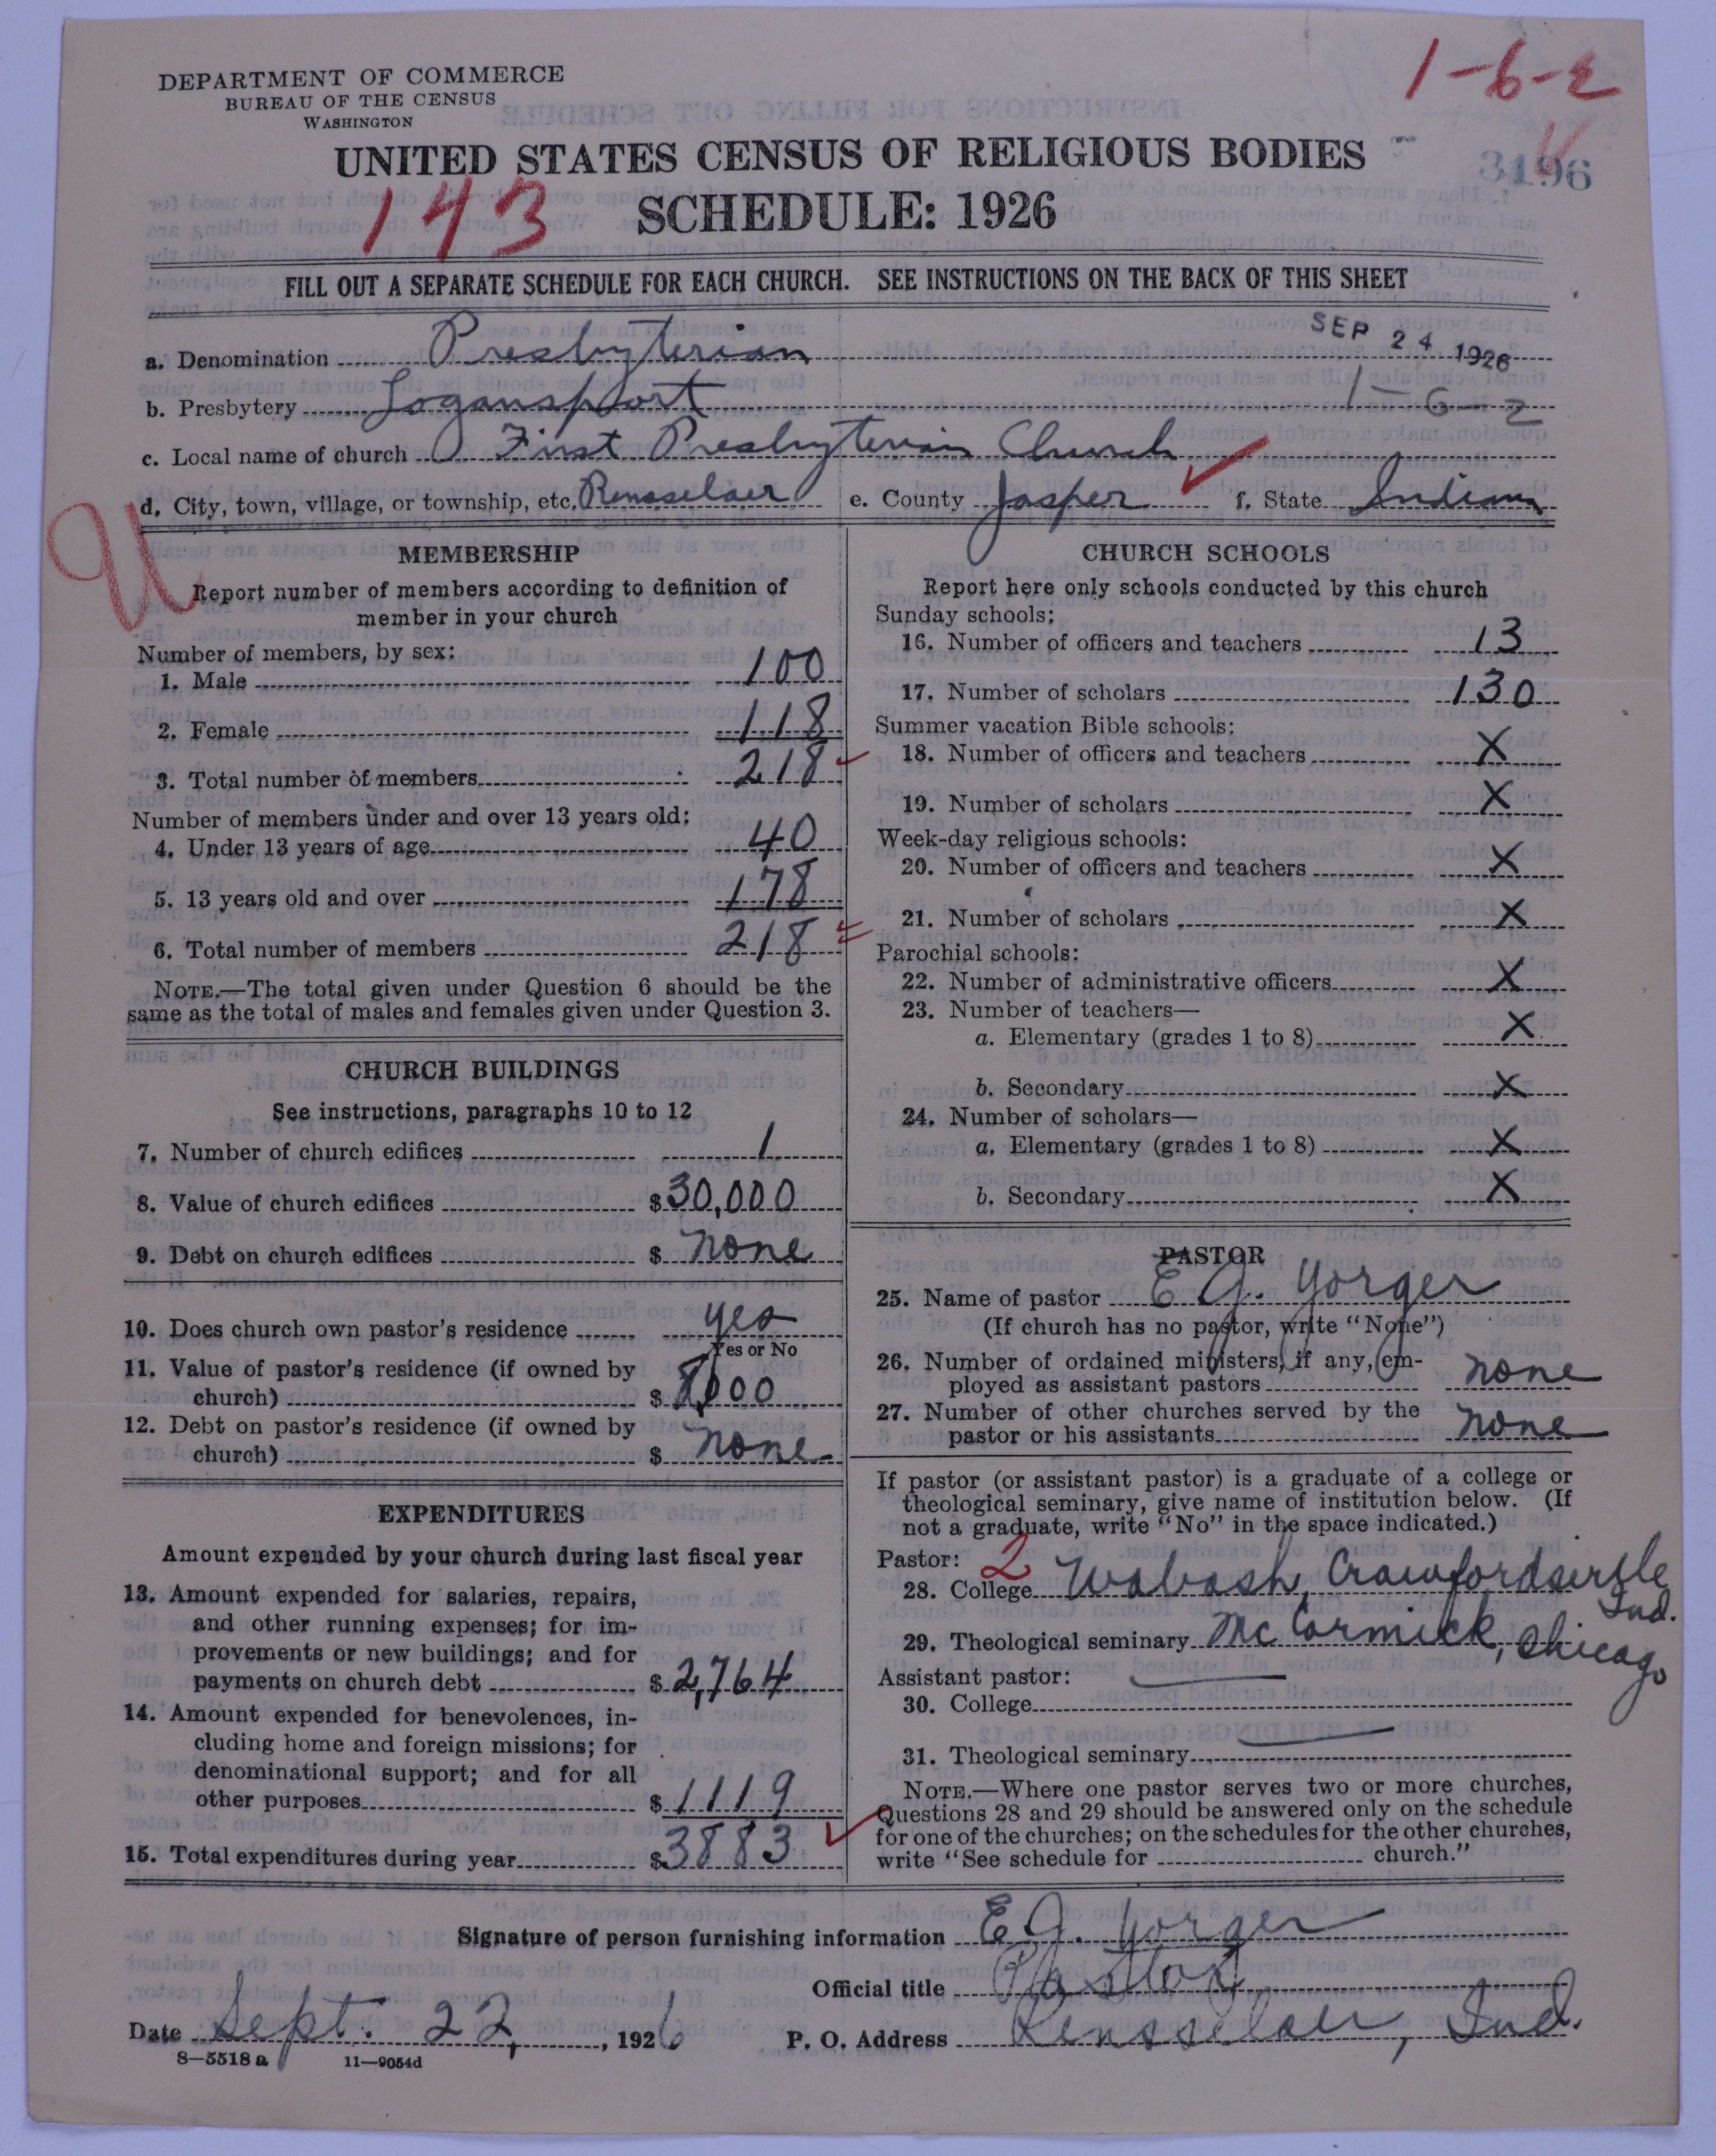 DEPARTMENT OF COMMERCE
BUREAU OF THE CENSUS
WASHINGTON
1-6-2
UNITED STATES CENSUS OF RELIGIOUS BODIES
3196
143
SCHEDULE: 1926
FILL OUT A SEPARATE SCHEDULE FOR EACH CHURCH. SEE INSTRUCTIONS ON THE BACK OF THIS SHEET
SEP 24 1926
a. Denomination Presbyterian
b. Presbytery Logansport 1-6-2
c. Local name of church First Presbyterian Church
d. City, town, village, or township, etc. Rensselaer e. County Jasper f. State Indiana
MEMBERSHIP
Report number of members according to definition of
member in your church
Number of members, by sex:
1. Male 100
2. Female 118
3. Total number of members 218
Number of members under and over 13 years old:
4. Under 13 years of age 40
5. 13 years old and over 178
6. Total number of members 218
NOTE.—The total given under Question 6 should be the
same as the total of males and females given under Question 3.
CHURCH BUILDINGS
See instructions, paragraphs 10 to 12
7. Number of church edifices 1
8. Value of church edifices $30,000
9. Debt on church edifices $ none
10. Does church own pastor's residence yes
Yes or No
11. Value of pastor's residence (if owned by
church) $ 8,000
12. Debt on pastor's residence (if owned by
church) $ none
EXPENDITURES
Amount expended by your church during last fiscal year
13. Amount expended for salaries, repairs,
and other running expenses; for im-
provements or new buildings; and for
payments on church debt $ 2,764
14. Amount expended for benevolences, in-
cluding home and foreign missions; for
denominational support; and for all
other purposes $ 1119
15. Total expenditures during year $3883
CHURCH SCHOOLS
Report here only schools conducted by this church
Sunday schools:
16. Number of officers and teachers 13
17. Number of scholars 130
Summer vacation Bible schools:
18. Number of officers and teachers X
19. Number of scholars X
Week-day religious schools:
20. Number of officers and teachers X
21. Number of scholars X
Parochial schools:
22. Number of administrative officers X
23. Number of teachers—
a. Elementary (grades 1 to 8) X
b. Secondary X
24. Number of scholars—
a. Elementary (grades 1 to 8) X
b. Secondary X
PASTOR
25. Name of pastor E. G. Yorger
(If church has no pastor, write "None")
26. Number of ordained ministers, if any, em-
ployed as assistant pastors none
27. Number of other churches served by the
pastor or his assistants none
If pastor (or assistant pastor) is a graduate of a college or
theological seminary, give name of institution below. (If
not a graduate, write "No" in the space indicated.)
Pastor: 2
28. College Wabash, Crawfordsville
Ind.
29. Theological seminary McCormick, Chicago
Assistant pastor:
30. College
31. Theological seminary
NOTE.—Where one pastor serves two or more churches,
Questions 28 and 29 should be answered only on the schedule
for one of the churches; on the schedules for the other churches,
write "See schedule for church."
Signature of person furnishing information E. G. Yorger
Official title Pastor
Date Sept. 22, 1926 P. O. Address Rensselaer, Ind.
8—5518 a 11—9054d